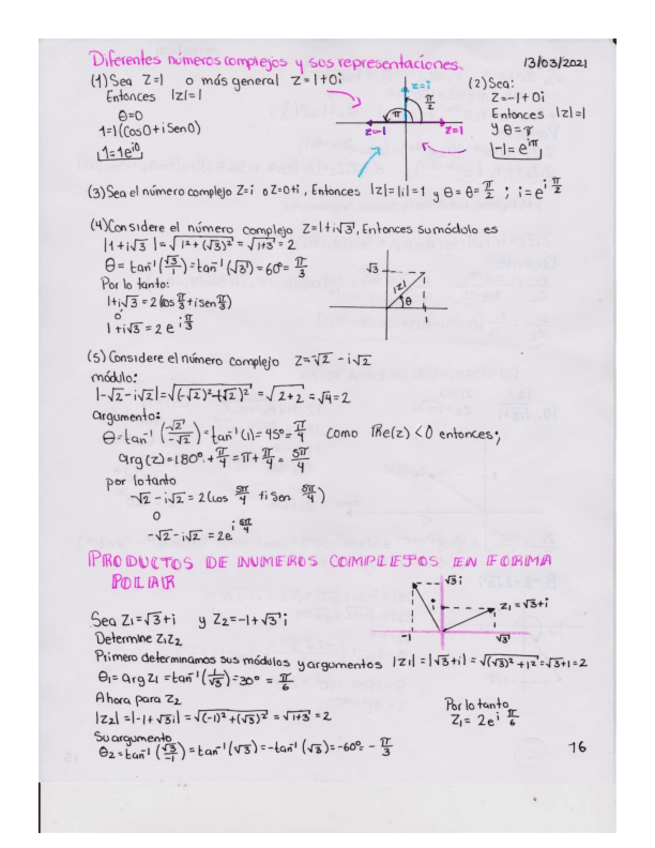 Diferentes números complejos y sus representaciones. 13/03/2021
(1) Sea Z=1 o más general Z=1+0i
Entonces |Z|=1
θ=0
1=1(Cos0+iSen0)
1=1e^{i0}
z=i
π/2
π
z=-1
z=1
(2) Sea:
Z=-1+0i
Entonces |Z|=1
y θ=π
-1=e^{iπ}
(3) Sea el número complejo Z=i o Z=0+i, Entonces |Z|=|i|=1 y θ=θ=π/2 ; i=e^{i π/2}
(4) Considere el número complejo Z=1+i√3, Entonces su módulo es
|1+i√3|=√(1²+(√3)²)=√(1+3)=2
θ=tan⁻¹(√3/1)=tan⁻¹(√3)=60°=π/3
Por lo tanto:
1+i√3=2(cos π/3+i sen π/3)
o
1+i√3=2e^{i π/3}
√3
|Z|
θ
1
(5) Considere el número complejo Z=√2-i√2
módulo:
|-√2-i√2|=√((-√2)²+(√2)²)=√(2+2)=√4=2
argumento:
θ=tan⁻¹(-√2/-√2)=tan⁻¹(1)=45°=π/4 como Re(z)<0 entonces;
arg(z)=180°+π/4=π+π/4=5π/4
por lo tanto
-√2-i√2=2(cos 5π/4 +i Sen 5π/4)
o
-√2-i√2=2e^{i 5π/4}
PRODUCTOS DE NUMEROS COMPLEJOS EN FORMA
POLAR
√3i
Z₁=√3+i
-1
√3
Sea Z₁=√3+i y Z₂=-1+√3i
Determine Z₁Z₂
Primero determinamos sus módulos y argumentos |Z₁|=|√3+i|=√((√3)²+1²)=√3+1=2
θ₁=arg Z₁=tan⁻¹(1/√3)=30°=π/6
Ahora para Z₂
|Z₂|=|-1+√3i|=√((-1)²+(√3)²)=√(1+3)=2
Por lo tanto
Z₁=2e^{i π/6}
Su argumento
θ₂=tan⁻¹(√3/-1)=tan⁻¹(√3)=-tan⁻¹(√3)=-60°=-π/3
16